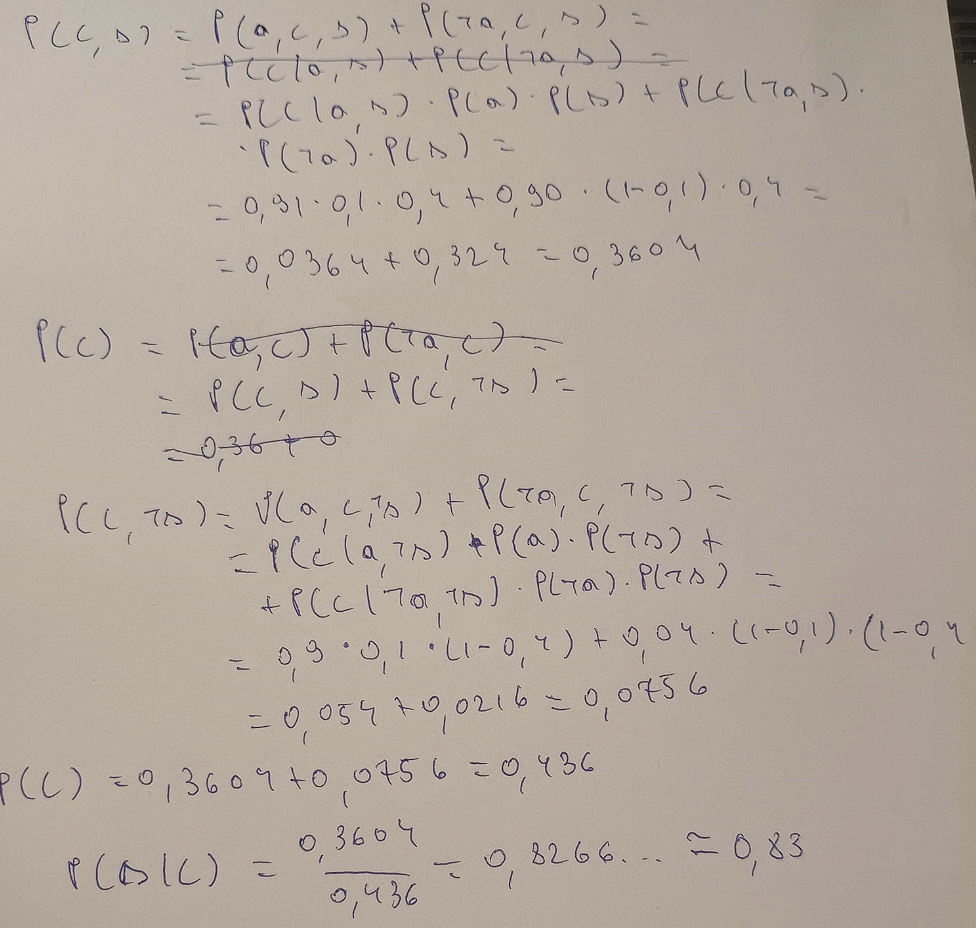 P(c, s) = P(a, c, s) + P(¬a, c, s) =
= P(c|a, s) + P(c|¬a, s) =
= P(c|a, s) · P(a) · P(s) + P(c|¬a, s) ·
· P(¬a) · P(s) =
= 0,91 · 0,1 · 0,4 + 0,90 · (1-0,1) · 0,4 =
= 0,0364 + 0,324 = 0,3604
P(c) = P(a, c) + P(¬a, c) =
= P(c, s) + P(c, ¬s) =
= 0,36 + 0
P(c, ¬s) = P(a, c, ¬s) + P(¬a, c, ¬s) =
= P(c|a, ¬s) · P(a) · P(¬s) +
+ P(c|¬a, ¬s) · P(¬a) · P(¬s) =
= 0,9 · 0,1 · (1-0,4) + 0,04 · (1-0,1) · (1-0,4
= 0,054 + 0,0216 = 0,0756
P(c) = 0,3604 + 0,0756 = 0,436
P(s|c) = 0,3604 / 0,436 = 0,8266... ≈ 0,83